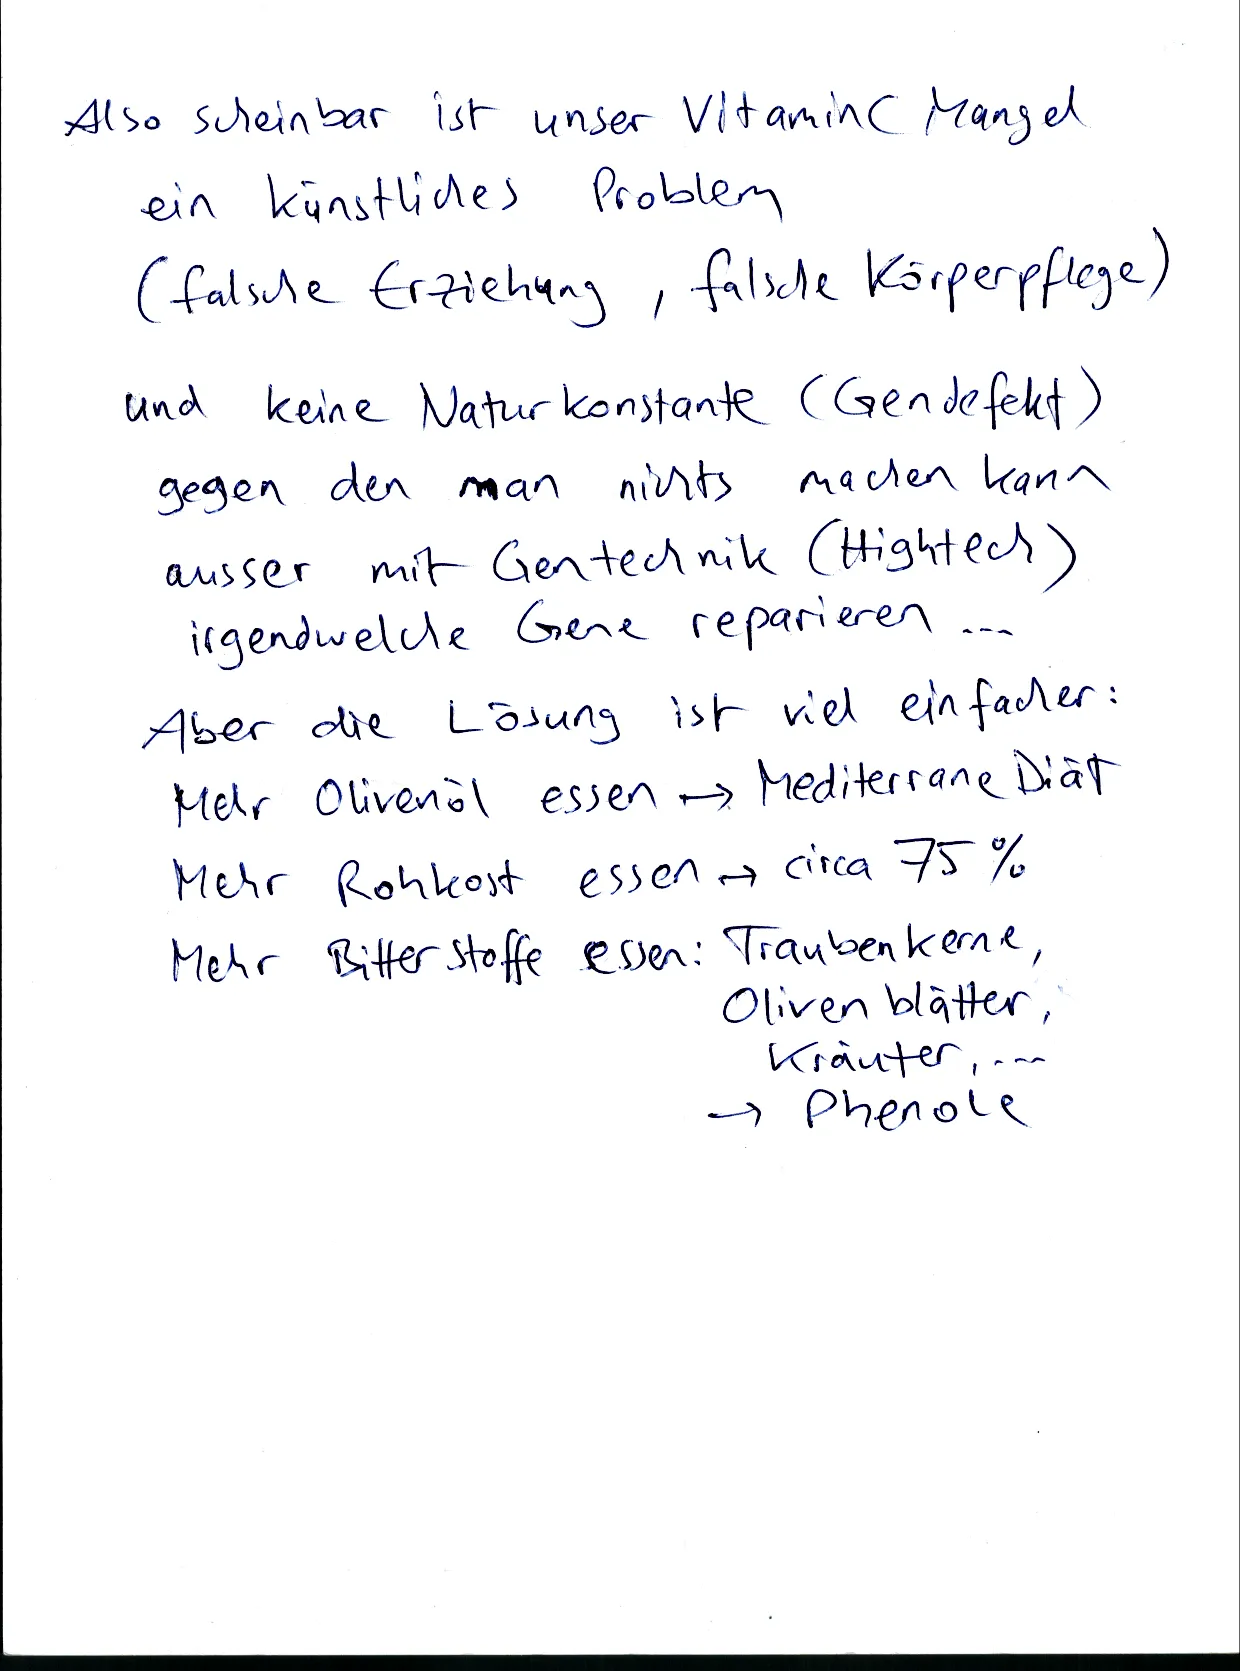 Also scheinbar ist unser Vitamin C Mangel
ein künstliches Problem
(falsche Erziehung, falsche Körperpflege)
und keine Naturkonstante (Gendefekt)
gegen den man nichts machen kann
ausser mit Gentechnik (Hightech)
irgendwelche Gene reparieren ...
Aber die Lösung ist viel einfacher:
Mehr Olivenöl essen → Mediterrane Diät
Mehr Rohkost essen → circa 75 %
Mehr Bitterstoffe essen: Traubenkerne,
Olivenblätter,
Kräuter, ...
→ Phenole